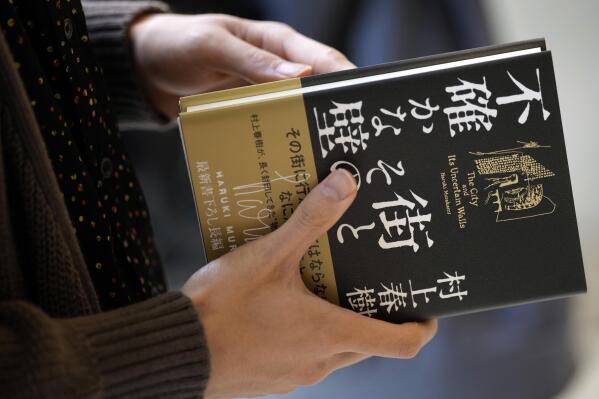 街と
その
不確かな壁
村上春樹
The City
and
Its Uncertain Walls
Haruki Murakami
その街に行
はならな
なに
村上春樹が、長く封印してきた
HARUKI MUR
最新書下ろし長編